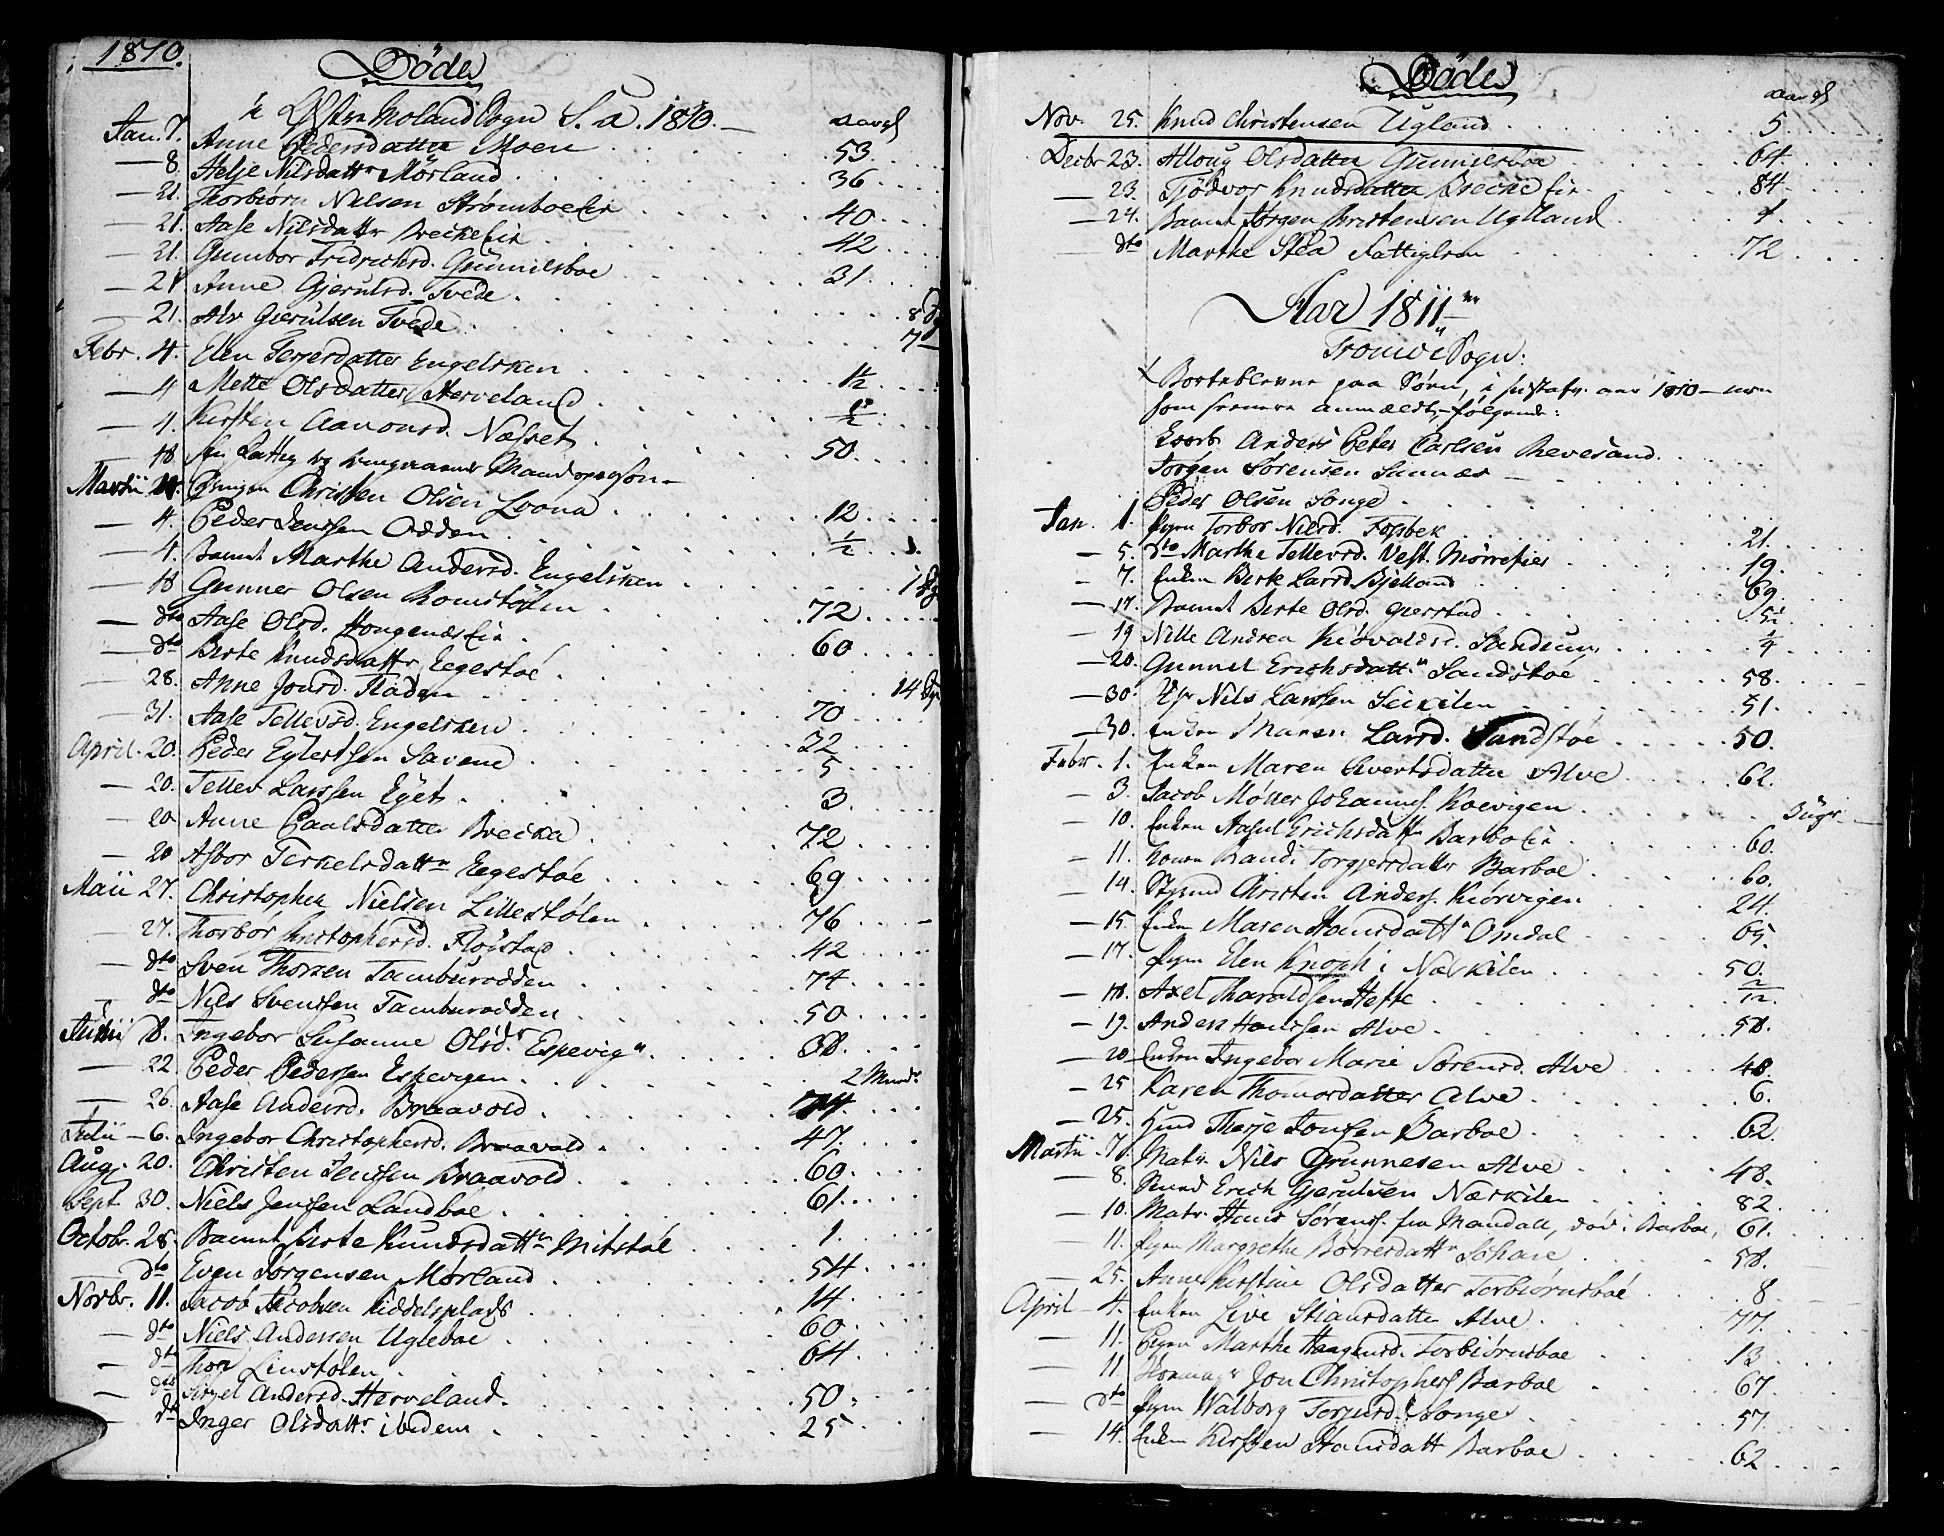 1810.
Døde
i Østre Moland Sogn S. a. 1810. aar gl
Jan. 7. Anne Pedersdatter Moen 53
8. Helje Nilsdattr Mörland 36
21. Thorbiörn Nilsen Strømboe 40
21. Aase Nilsdattr Breckefie 42
21. Gunbor Fridrichsd. Gunnilsboe 31
21 Anne Gjerulsd. Tvede 8 Dg
21. Alv Gjerulsen Tvede 7
Febr. 4. Elen Terjersdatter Engelsken 1½
4 Mette Olsdatter Herveland
4. Kirsten Aanonsd. Næsset 50
18 Mandsperson
Martii 4. Drengen Christen Olsen Loona 12
4. Peder Jenssen Odden ½
4. Barnet Marthe Andersd. Engelsken 1 Dg
18 Gunner Olsen Romstölen 72
dto Aase Olsd. Hougenæsfie 60
dto Berte Knudsdattr Eegestöe
28. Anne Jonsd. Fladen 14 Dg
31. Aase Tellevsd. Engelsken 70
April. 20. Peder Eylertsen Savene 32
20. Tellev Larssen Eyet 5
20 Anne Paulsdatter Brecka 3
20 Asbor Terkelsdattr Eegestöe 72
Maii 27. Christopher Nielsen Lillestölen 69
27. Thorbör Christophersd. Flöystad 76
dto Sven Thorsen Tamburodden 42
dto Nils Svendsen Tamburodden 74
Junii 8. Ingebor Susanne Olsd. Espevign 50
22. Peder Pedersen Espevigen 38
26. Aase Andersd. Braavold 2 Mnd.
Julii 6. Ingebor Christophersd. Braavold 47
Aug. 20. Christen Jenssen Braavold 60
Sept 30. Niels Jensen Landboe 61
Octobr. 28. Barnet Berte Knudsdattr Mitstöl 1
dto Even Jörgensen Mörland 54
Novbr. 11. Jacob Jacobsen Kiddelsplads 14
dto Niels Andersen Ugleboe 60
dto Thor Linstölen 64
dto Sissel Andersd. Herveland 50
dto Inger Olsdattr ibidem 25
Døde aar gl
Nov. 25. Knud Christensen Ugland 5
Decbr 23. Alloug Olsdatter Gunnilsboe 64
23. Tjödvor Knudsdatter Breckefie 84
24. Barnet Jörgen Christensen Ugland
dto Marthe Stea Fattiglem 72
Aar 1811
Tromöe Sogn.
Bortblevne paa Söen, i sidstafv. aar 1810 – men
som senere anmældt, følgende:
Anders Peter Carlsen Revesand
Jörgen Sörensen Sannæs
Peder Olsen Songe
Jan. 1. Pigen Torbor Nilsd. Fogsbek 21
5. dto Marthe Tellevsd. Vest. Mörrefier 19.
7. Enken Berte Larsd. Bjelland 69
17. Barnet Berte Olsd. Gierstad 5½
19 Nille Andrea Kiövaldsd. Sandum ¼
20. Gunnel Erichsdattr Sandstöe 58.
30. Nils Larssen Seikilen 51.
30. Enken Maren Larsd. Sandstöe 50.
Febr. 1. Enken Maren Sivertsdatter Alve 62
3. Jacob Möller Johannes. Kovigen 3 uger
10. Enken Aasel Erichsdattr Barbofie 60.
11. Konen Randi Torgjersdatter Barboe 60.
14. Styrmd Christen Anders. Kiörvigen 24
15. Enken Maren Hansdattr Omdal 65
17. Pigen Elen Knoph i Næskilen 50.
18. Axel Tharaldsen Hesse 2/12
19. Anders Hanssen Alve 58.
20 Enken Ingebor Marie Sörensd. Alve 48.
25 Karen Thomasdatter Alve 6.
25. Terje Jonsen Barboe 62
Martii 7. Matr. Nils Grunnesen Alve 48.
8. Erich Gjerulsen Næskilen 82
10. Matr. Hans Sörens. fra Mandall, död i Barboe, 61.
11. Pigen Margrethe Börresdattr Schare 58.
25. Anne Kirstine Olsdatter Torbiörnsboe 8
April 4. Enken Live Stiansdatter Alve 77.
11. Pigen Marthe Haagensd. Torbiörnsboe 13
11. Jon Christophers Barboe 67
dto Pigen Walborg Torjusd. Songe 57.
14. Enken Kirsten Hansdatt Barboe 62